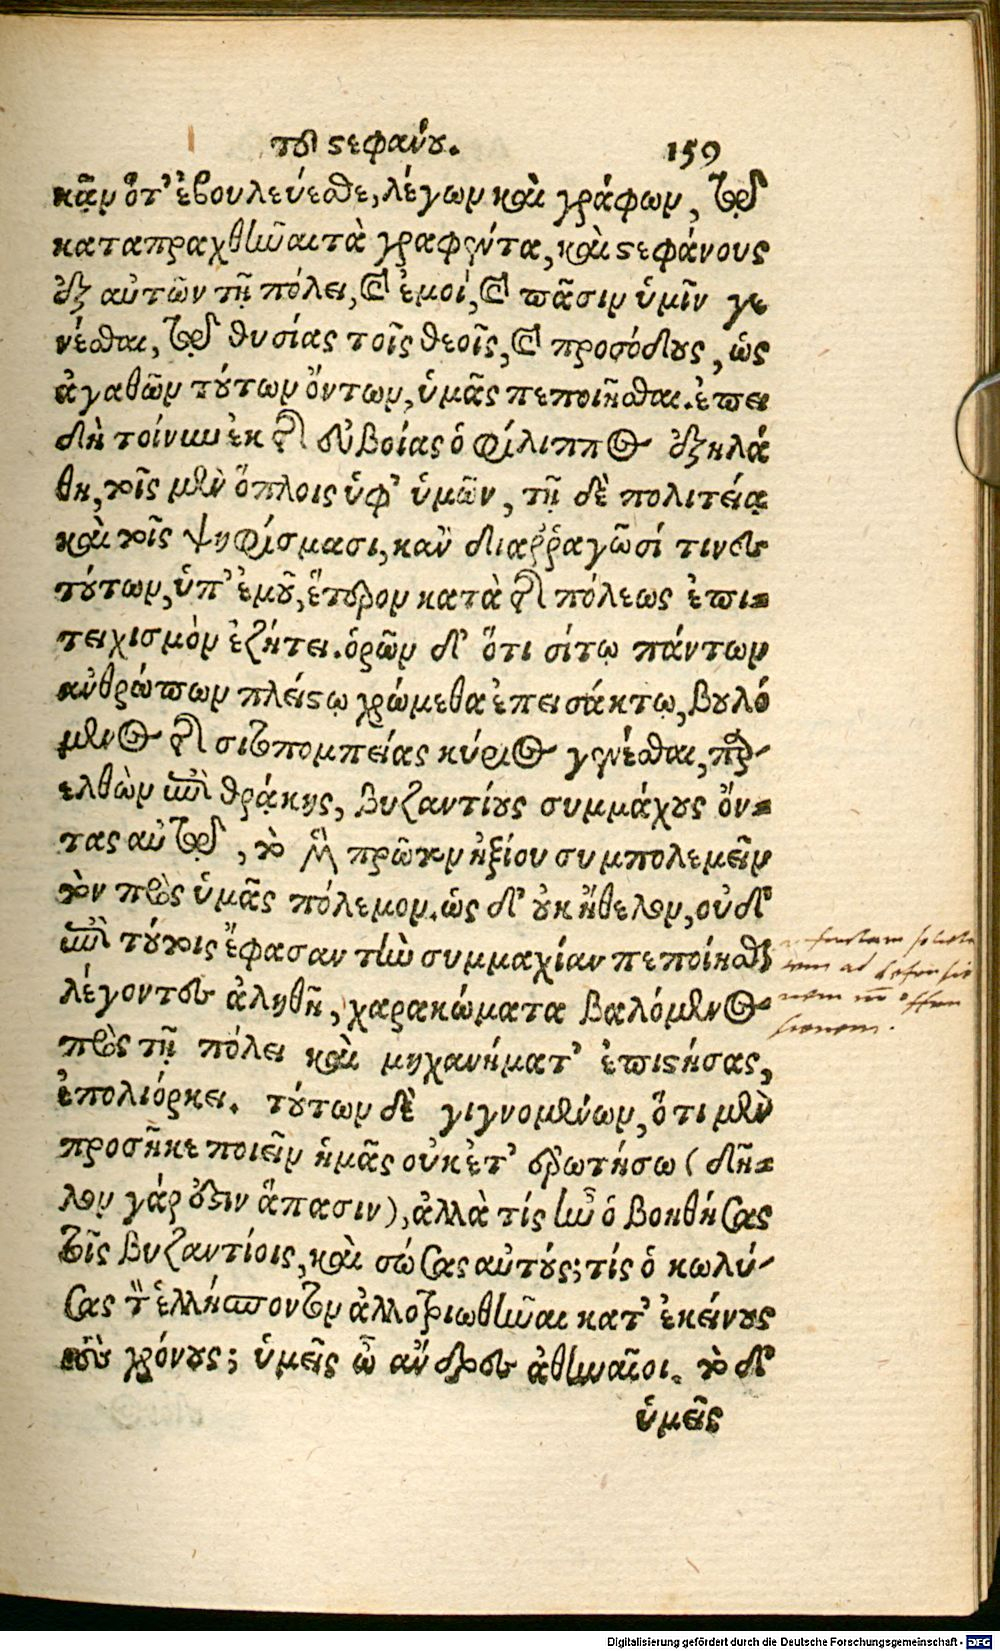 τοῦ στεφάνου. 159
κᾂν ὅτ' ἐβουλεύεσθε, λέγων καὶ γράφων, τοῦ
καταπραχθῆναι τὰ γραφέντα, καὶ στεφάνους
ἐξ αὐτῶν τῇ πόλει, καὶ ἐμοί, καὶ πᾶσιν ὑμῖν γε
νέσθαι, τοῦ θυσίας τοῖς θεοῖς, καὶ προσόδους, ὡς
ἀγαθῶν τούτων ὄντων, ὑμᾶς πεποιῆσθαι. ἐπει
δὴ τοίνυν ἐκ τῆς εὐβοίας ὁ φίλιππος ἐξηλά
θη, τοῖς μὲν ὅπλοις ὑφ' ὑμῶν, τῇ δὲ πολιτείᾳ
καὶ τοῖς ψηφίσμασι, κᾂν διαῤῥαγῶσί τινες
τούτων, ὑπ' ἐμοῦ, ἕτερον κατὰ τῆς πόλεως ἐπι-
τειχισμὸν ἐζήτει. ὁρῶν δ' ὅτι σίτῳ πάντων
ἀνθρώπων πλείστῳ χρώμεθα ἐπεισάκτῳ, βουλό
μενος τῆς σιτοπομπείας κύριος γενέσθαι, παρ-
ελθὼν ἐπὶ θρᾴκης, βυζαντίους συμμάχους ὄν-
τας αὐτοῦ, τὸ μὲν πρῶτον ἠξίου συμπολεμεῖν
τὸν πρὸς ὑμᾶς πόλεμον. ὡς δ' οὐκ ἤθελον, οὐδ'
ἐπὶ τούτοις ἔφασαν τὴν συμμαχίαν πεποιῆσθαι
λέγοντες ἀληθῆ, χαρακώματα βαλόμενος
πρὸς τῇ πόλει καὶ μηχανήματ' ἐπιστήσας,
ἐπολιόρκει. τούτων δὲ γιγνομένων, ὅτι μὲν
προσῆκε ποιεῖν ἡμᾶς οὐκ ἔτ' ἐρωτήσω (δῆ-
λον γάρ ἐστιν ἅπασιν), ἀλλὰ τίς ἦν ὁ βοηθήσας
τοῖς βυζαντίοις, καὶ σώσας αὐτούς; τίς ὁ κωλύ-
σας τὸν ἑλλήσποντον ἀλλοτριωθῆναι κατ' ἐκείνους
τοὺς χρόνους; ὑμεῖς ὦ ἄνδρες ἀθηναῖοι. τὸ δ'
ὑμεῖς
ad defensio
nem
Digitalisierung gefördert durch die Deutsche Forschungsgemeinschaft - DFG